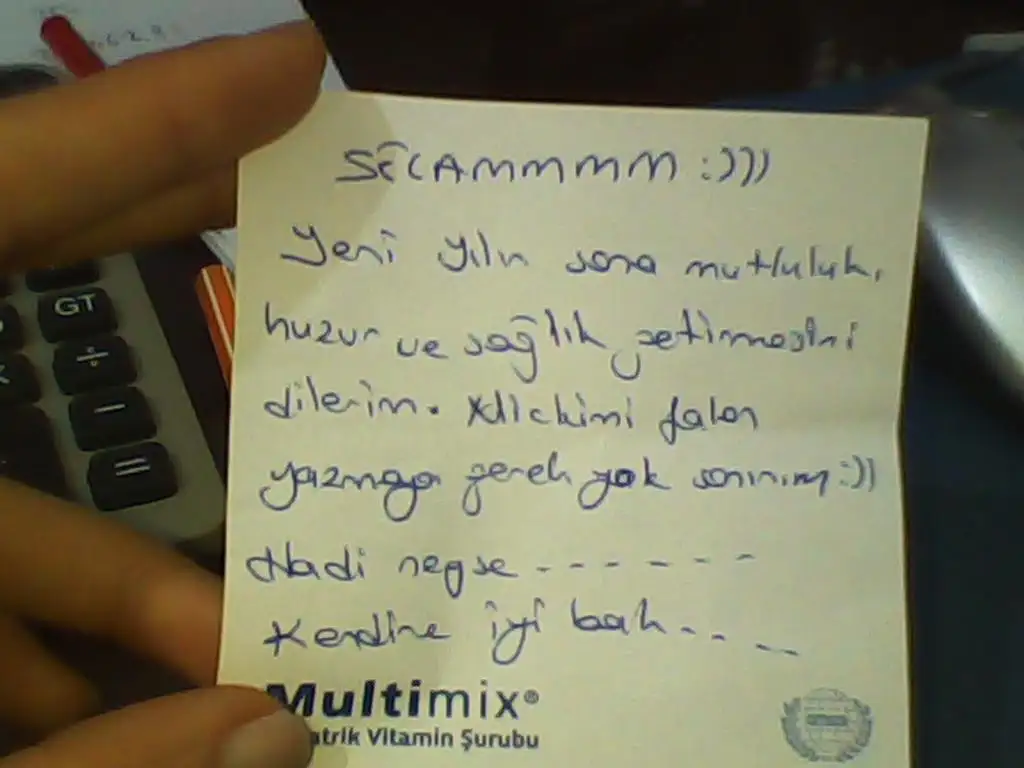 SELAMMMM :)))
Yeni yılın sana mutluluk,
huzur ve sağlık getirmesini
dilerim.
falan
yazmaya gerek yok sanırım :))
Hadi neyse - - - - - - -
Kendine iyi bak - - - -
Multimix®
atrik Vitamin Şurubu
GT
÷
−
=